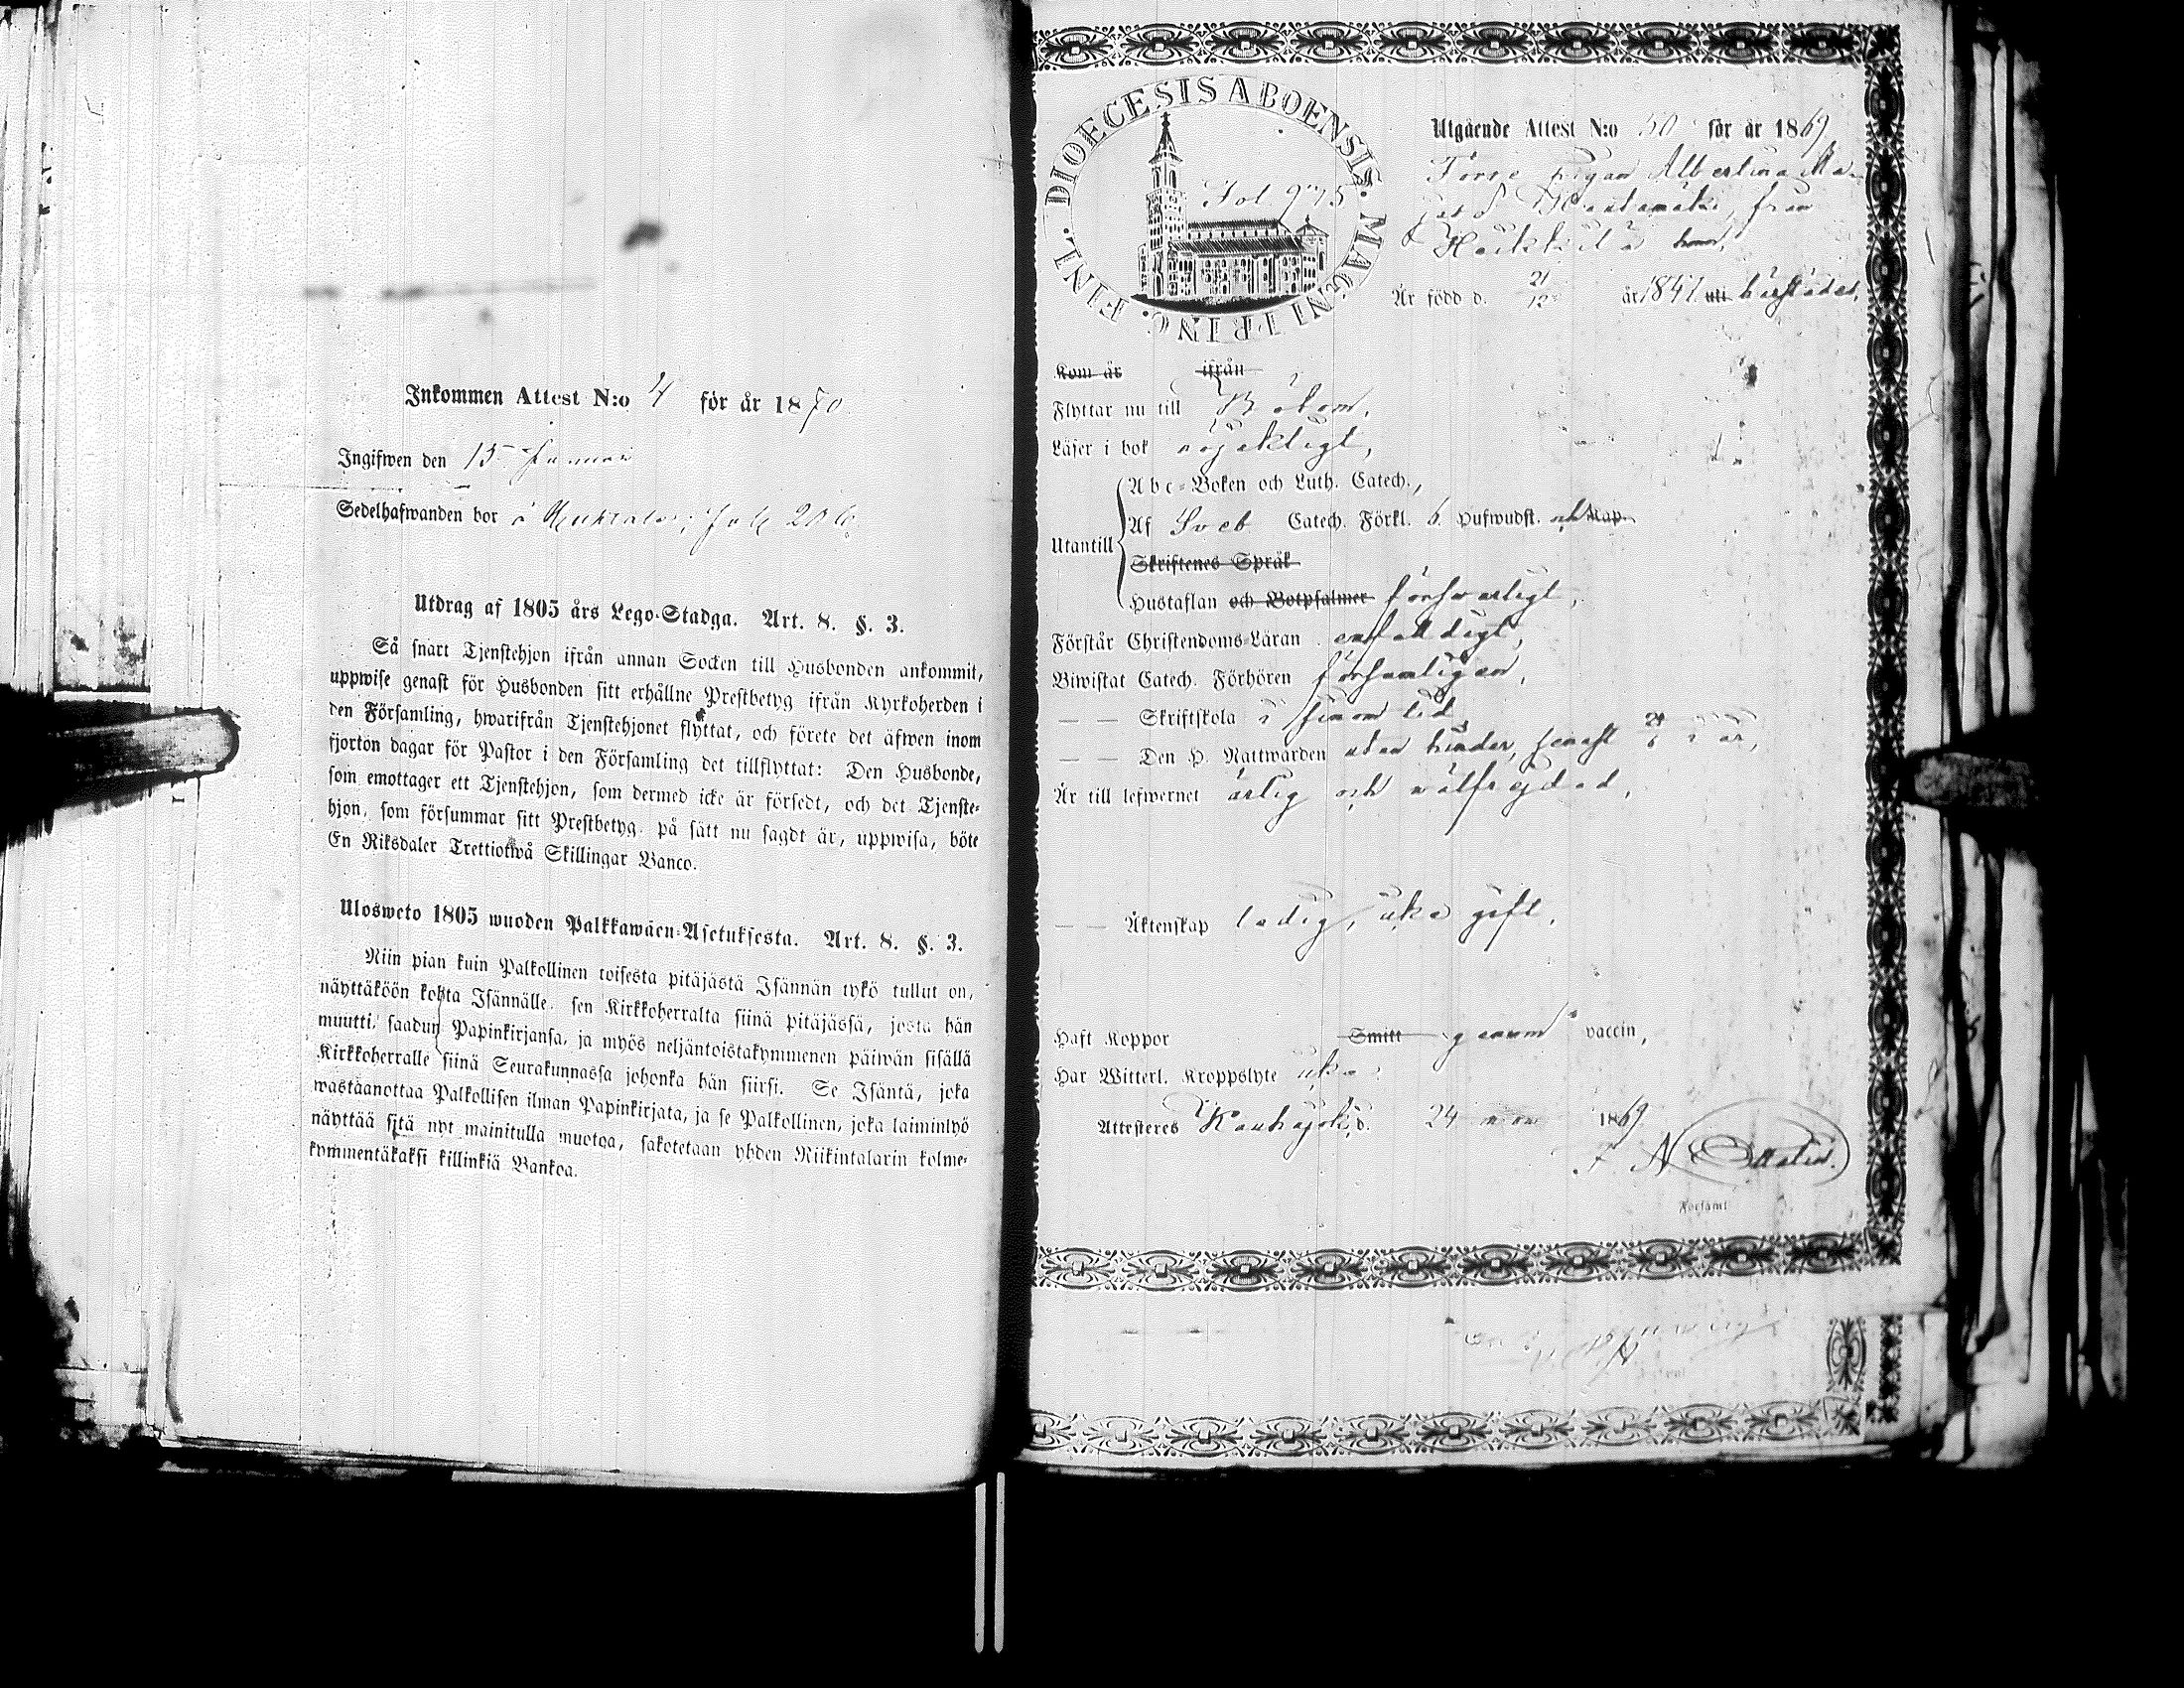 Inkommen Attest N:o 4 för år 1870
Ingifwen den 15 Januari
Sedelhafwanden bor å
Utdrag af 1805 års Lego-Stadga. Art. 8. §. 3.
Så snart Tjenstehjon ifrån annan Socken till Husbonden ankommit,
uppwise genast för Husbonden sitt erhållne Prestbetyg ifrån Kyrkoherden i
den Församling, hwarifrån Tjenstehjonet flyttat, och förete det äfwen inom
fjorton dagar för Pastor i den Församling det tillflyttat: Den Husbonde,
som emottager ett Tjenstehjon, som dermed icke är försedt, och det Tjenste-
hjon, som försummar sitt Prestbetyg. på sätt nu sagdt är, uppwisa, böte
En Riksdaler Trettiotwå Skillingar Banco.
Ulosweto 1805 wuoden Palkkawäen-Asetuksesta. Art. 8. §. 3.
Niin pian kuin Palkollinen toisesta pitäjästä Isännän tykö tullut on,
näyttäköön kohta Isännälle. sen Kirkkoherralta siinä pitäjässä, josta hän
muutti, saadun Papinkirjansa, ja myös neljäntoistakymmenen päiwän sisällä
Kirkkoherralle siinä Seurakunnassa johonka hän siirsi. Se Isäntä, joka
wastaanottaa Palkollisen ilman Papinkirjata, ja se Palkollinen, joka laiminlyö
näyttää sitä nyt mainitulla muotoa, sakotetaan yhden Riikintalarin kolme-
kymmentäkaksi killinkiä Bankoa.
DIOECESIS ABOENSIS. MAGNI PRINC. FINL.
Fol. 975
Utgående Attest N:o 50 för år 1869
Förre pigan Albertina Ma-
från
Är född d. 21/12 år 1847 uti härstädes,
Kom år ifrån
Flyttar nu till Bötom,
Läser i bok nöjaktigt,
Abc-Boken och Luth. Catech.,
Utantill Af Sveb. Catech. Förkl. 6 Hufwudst. och Kap.
Skriftenes Språk
Hustaflan och Botpsalmer försvarligt,
Förstår Christendoms-Läran enfaldigt,
Biwistat Catech. Förhören församligen,
— — Skriftskola i sinom tid
— — Den H. Nattwarden utan hinder, senast 24/6 i år,
Är till lefwernet ärlig och välfrejdad,
— — Äktenskap ledig, icke gift,
Haft Koppor Smitt genom vaccin,
Har Witterl. Kroppslyte icke.
Attesteres Kauhajoki, d. 24 1869